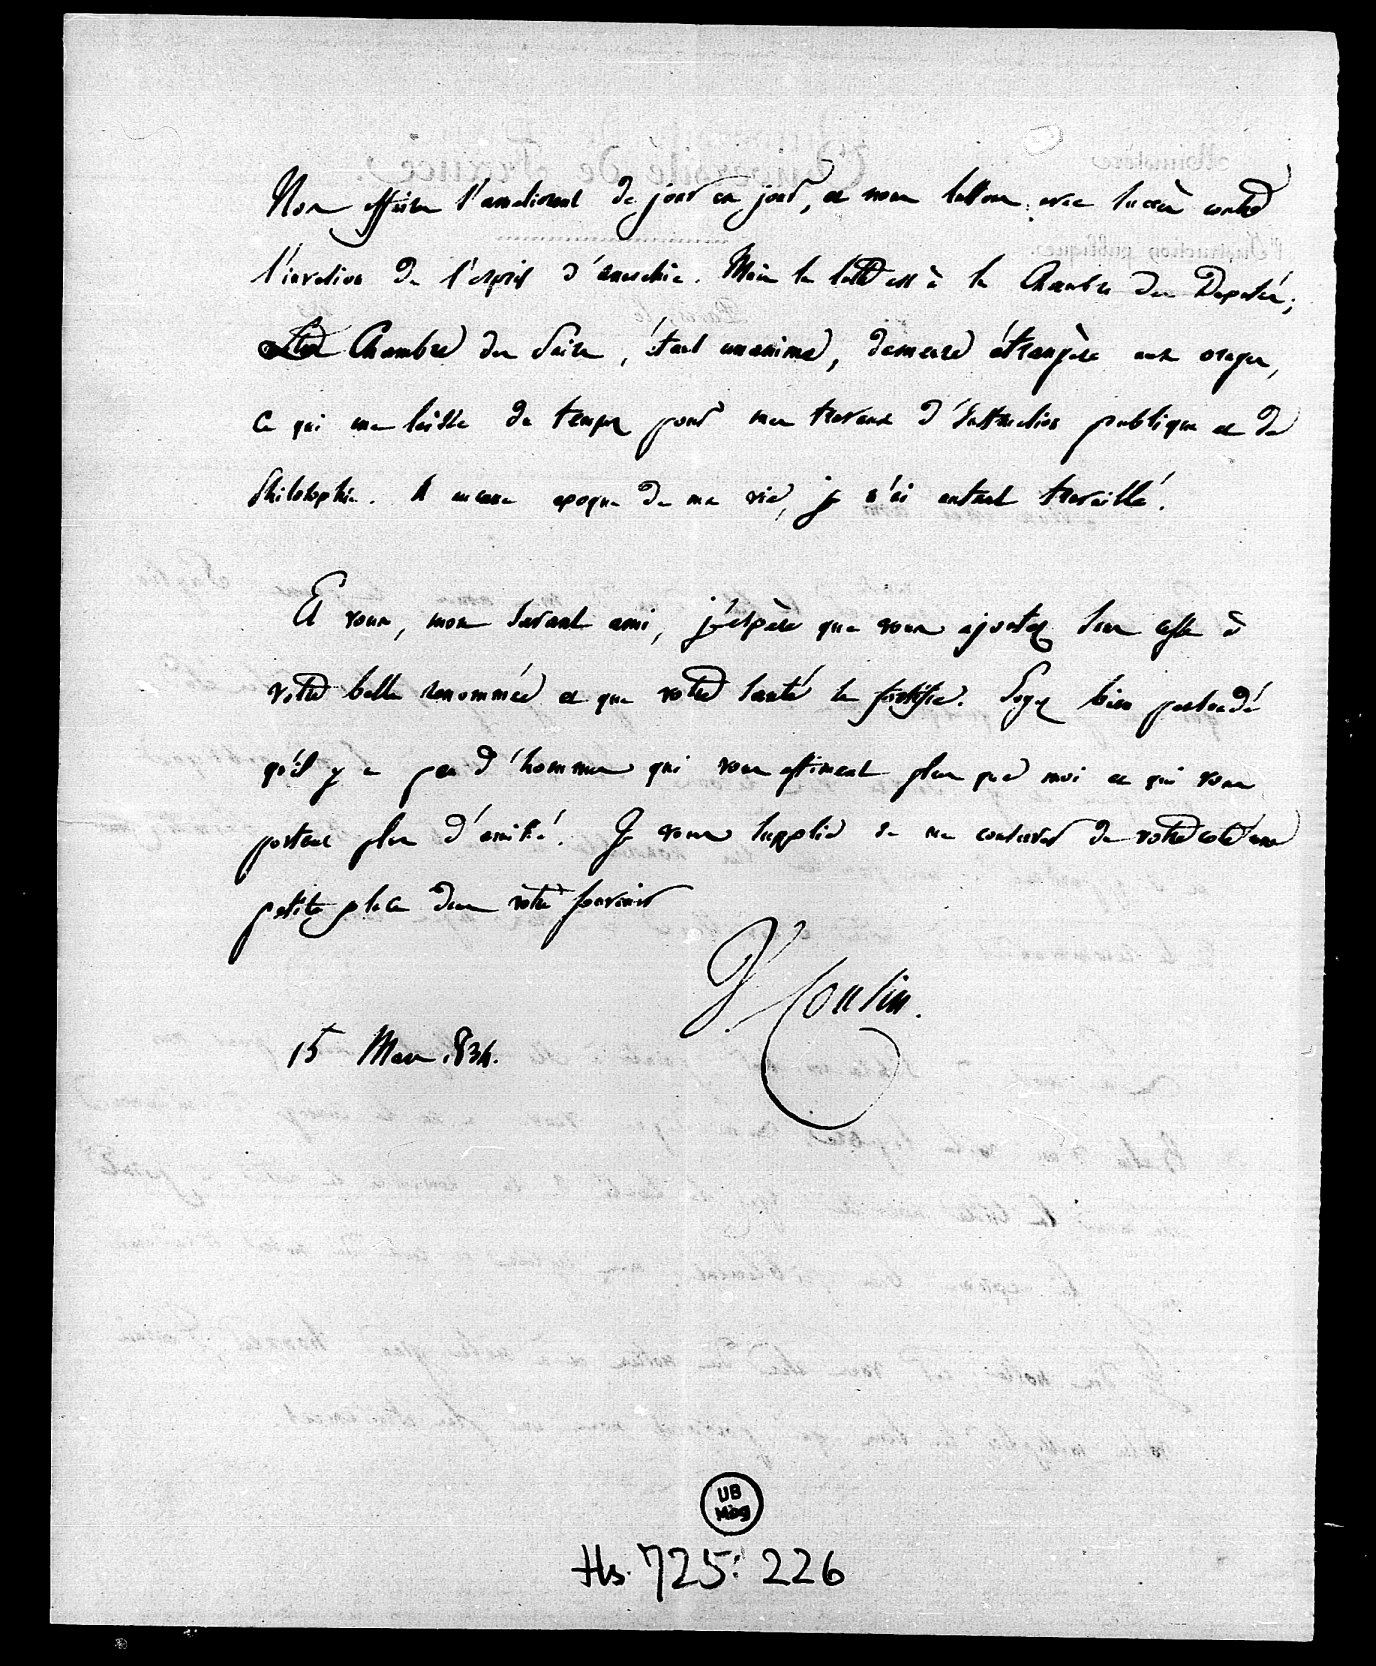 Nos affaires s'améliorent de jour en jour, et nous luttons avec succès contre
l'invasion de l'esprit d'anarchie. Mais la lutte est à la Chambre des Députés;
la Chambre des Pairs, étant unanime, demeure étrangère aux orages,
ce qui me laisse du temps pour mes travaux d'Instruction publique et de
philosophie. A aucune époque de ma vie, je n'ai autant travaillé.
Et vous, mon savant ami, j'espère que vous ajoutez sans cesse à
votre belle renommée et que votre santé se fortifie. Soyez bien persuadé
qu'il y a peu d'hommes qui vous estiment plus que moi et qui vous
portent plus d'amitié. Je vous supplie de me conserver de votre coté une
petite place dans votre souvenir
V. Cousin.
15 Mars 1834.
UB
Mbg
Hs. 725: 226